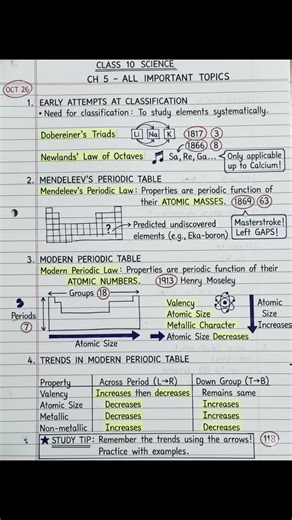 CLASS 10 SCIENCE
CH 5 - ALL IMPORTANT TOPICS
OCT 26
1. EARLY ATTEMPTS AT CLASSIFICATION
• Need for classification: To study elements systematically.
Dobereiner's Triads Li Na K 1817 3
1866 8
Newlands' Law of Octaves Sa, Re, Ga... Only applicable
up to Calcium!
2. MENDELEEV'S PERIODIC TABLE
Mendeleev's Periodic Law: Properties are periodic function of
their ATOMIC MASSES. 1869 63
? Predicted undiscovered
elements (e.g., Eka-boron)
Masterstroke!
Left GAPS!
3. MODERN PERIODIC TABLE
Modern Periodic Law: Properties are periodic function of their
ATOMIC NUMBERS. 1913 Henry Moseley
Groups 18
Periods
7
Atomic Size
Valency
Atomic Size
Metallic Character
Atomic Size Decreases
Atomic
Size
Increases
4. TRENDS IN MODERN PERIODIC TABLE
Property Across Period (L→R) Down Group (T→B)
Valency Increases then decreases Remains same
Atomic Size Decreases Increases
Metallic Decreases Increases
Non-metallic Increases Decreases
★ STUDY TIP: Remember the trends using the arrows!
Practice with examples.
118